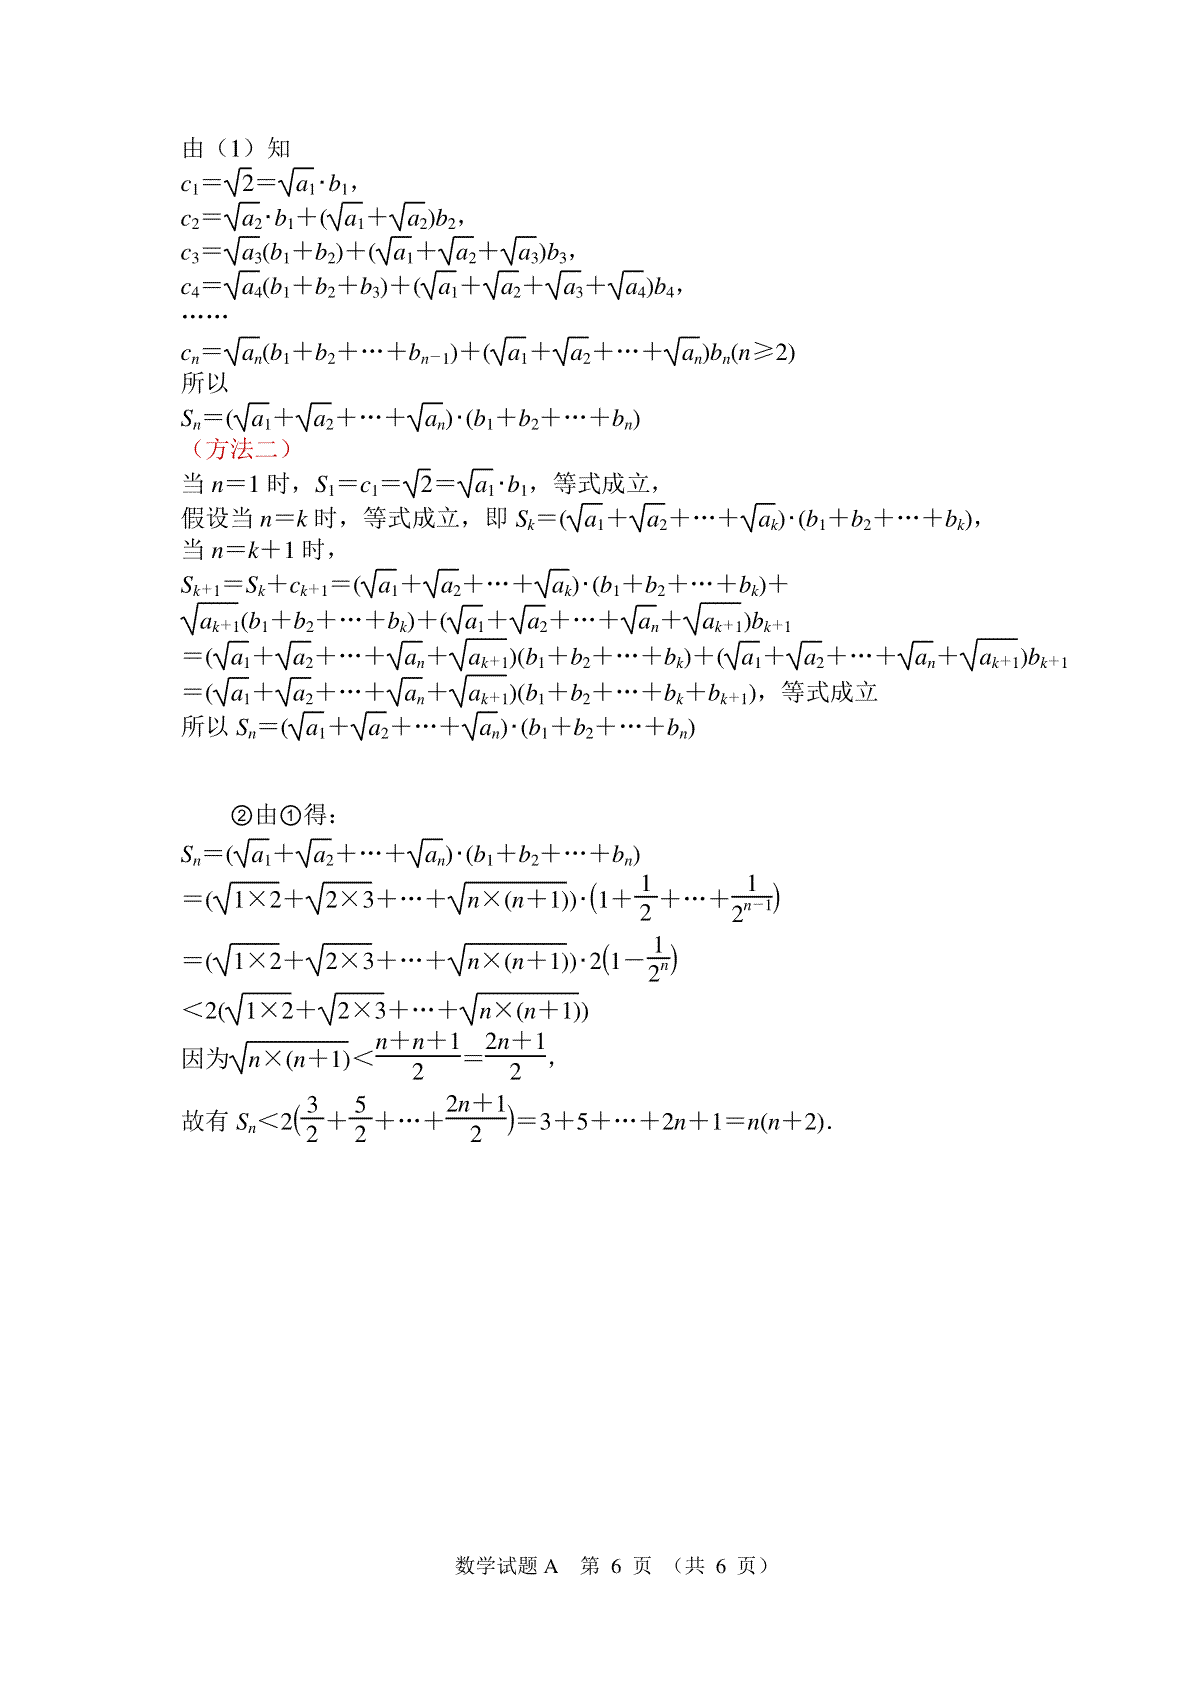 由（1）知
c₁＝√2＝√a₁·b₁，
c₂＝√a₂·b₁＋(√a₁＋√a₂)b₂，
c₃＝√a₃(b₁＋b₂)＋(√a₁＋√a₂＋√a₃)b₃，
c₄＝√a₄(b₁＋b₂＋b₃)＋(√a₁＋√a₂＋√a₃＋√a₄)b₄，
……
cₙ＝√aₙ(b₁＋b₂＋…＋bₙ₋₁)＋(√a₁＋√a₂＋…＋√aₙ)bₙ(n≥2)
所以
Sₙ＝(√a₁＋√a₂＋…＋√aₙ)·(b₁＋b₂＋…＋bₙ)
（方法二）
当 n＝1 时，S₁＝c₁＝√2＝√a₁·b₁，等式成立，
假设当 n＝k 时，等式成立，即 Sₖ＝(√a₁＋√a₂＋…＋√aₖ)·(b₁＋b₂＋…＋bₖ)，
当 n＝k＋1 时，
Sₖ₊₁＝Sₖ＋cₖ₊₁＝(√a₁＋√a₂＋…＋√aₖ)·(b₁＋b₂＋…＋bₖ)＋
√aₖ₊₁(b₁＋b₂＋…＋bₖ)＋(√a₁＋√a₂＋…＋√aₙ＋√aₖ₊₁)bₖ₊₁
＝(√a₁＋√a₂＋…＋√aₙ＋√aₖ₊₁)(b₁＋b₂＋…＋bₖ)＋(√a₁＋√a₂＋…＋√aₙ＋√aₖ₊₁)bₖ₊₁
＝(√a₁＋√a₂＋…＋√aₙ＋√aₖ₊₁)(b₁＋b₂＋…＋bₖ＋bₖ₊₁)，等式成立
所以 Sₙ＝(√a₁＋√a₂＋…＋√aₙ)·(b₁＋b₂＋…＋bₙ)
②由①得：
Sₙ＝(√a₁＋√a₂＋…＋√aₙ)·(b₁＋b₂＋…＋bₙ)
＝(√(1×2)＋√(2×3)＋…＋√(n×(n＋1)))·(1＋1/2＋…＋1/2ⁿ⁻¹)
＝(√(1×2)＋√(2×3)＋…＋√(n×(n＋1)))·2(1－1/2ⁿ)
＜2(√(1×2)＋√(2×3)＋…＋√(n×(n＋1)))
因为√(n×(n＋1))＜(n＋n＋1)/2＝(2n＋1)/2，
故有 Sₙ＜2(3/2＋5/2＋…＋(2n＋1)/2)＝3＋5＋…＋2n＋1＝n(n＋2)．
数学试题 A 第 6 页 （共 6 页）